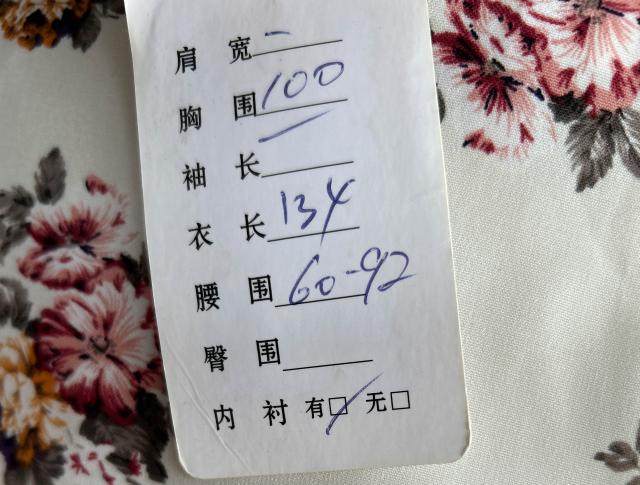 肩 宽 -
胸 围 100
袖 长 -
衣 长 134
腰 围 60-92
臀 围
内 衬 有☑ 无□